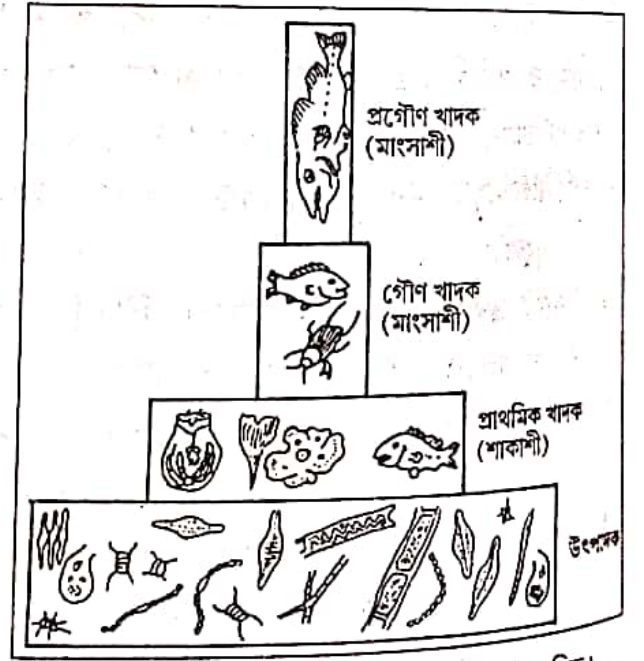 প্রগৌণ খাদক
(মাংসাশী)
গৌণ খাদক
(মাংসাশী)
প্রাথমিক খাদক
(শাকাশী)
উৎপাদক